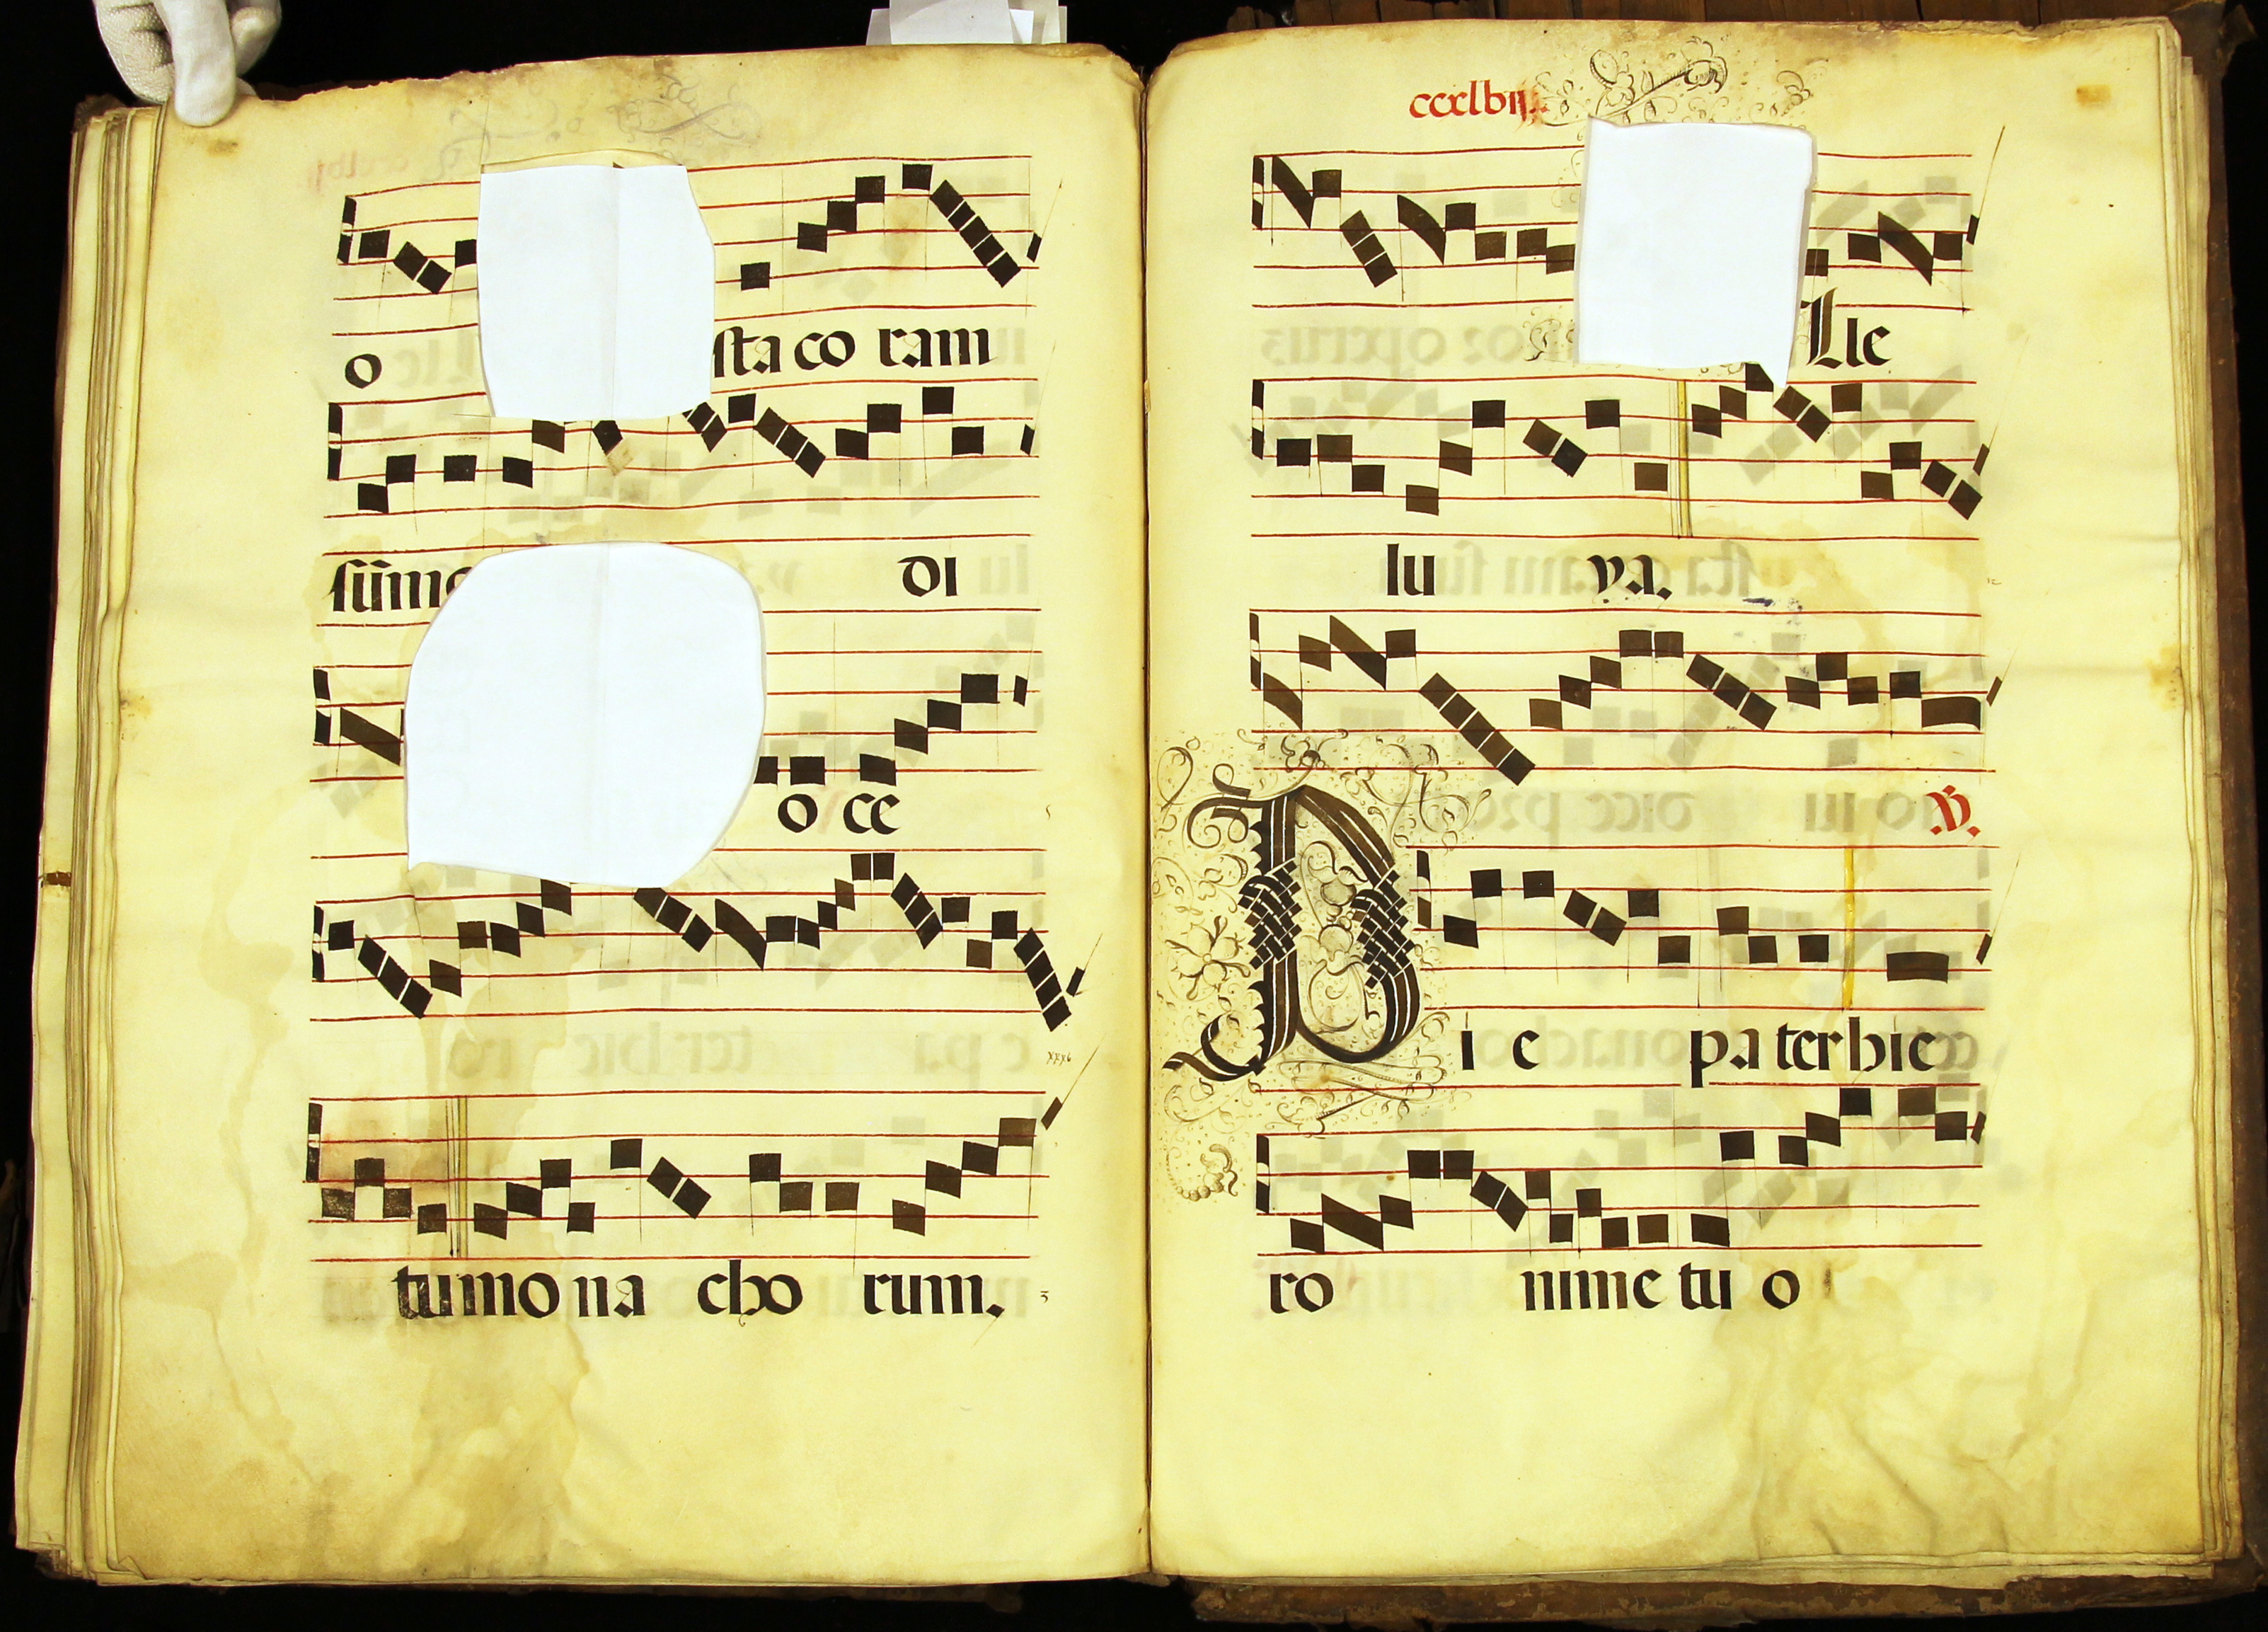 o sta co ram
sũmo di
o ce
tu mo na cho rum.
ccxlbij.
Lle
lu ya.
V.
Hi e pa ter hie
ro nime tu o